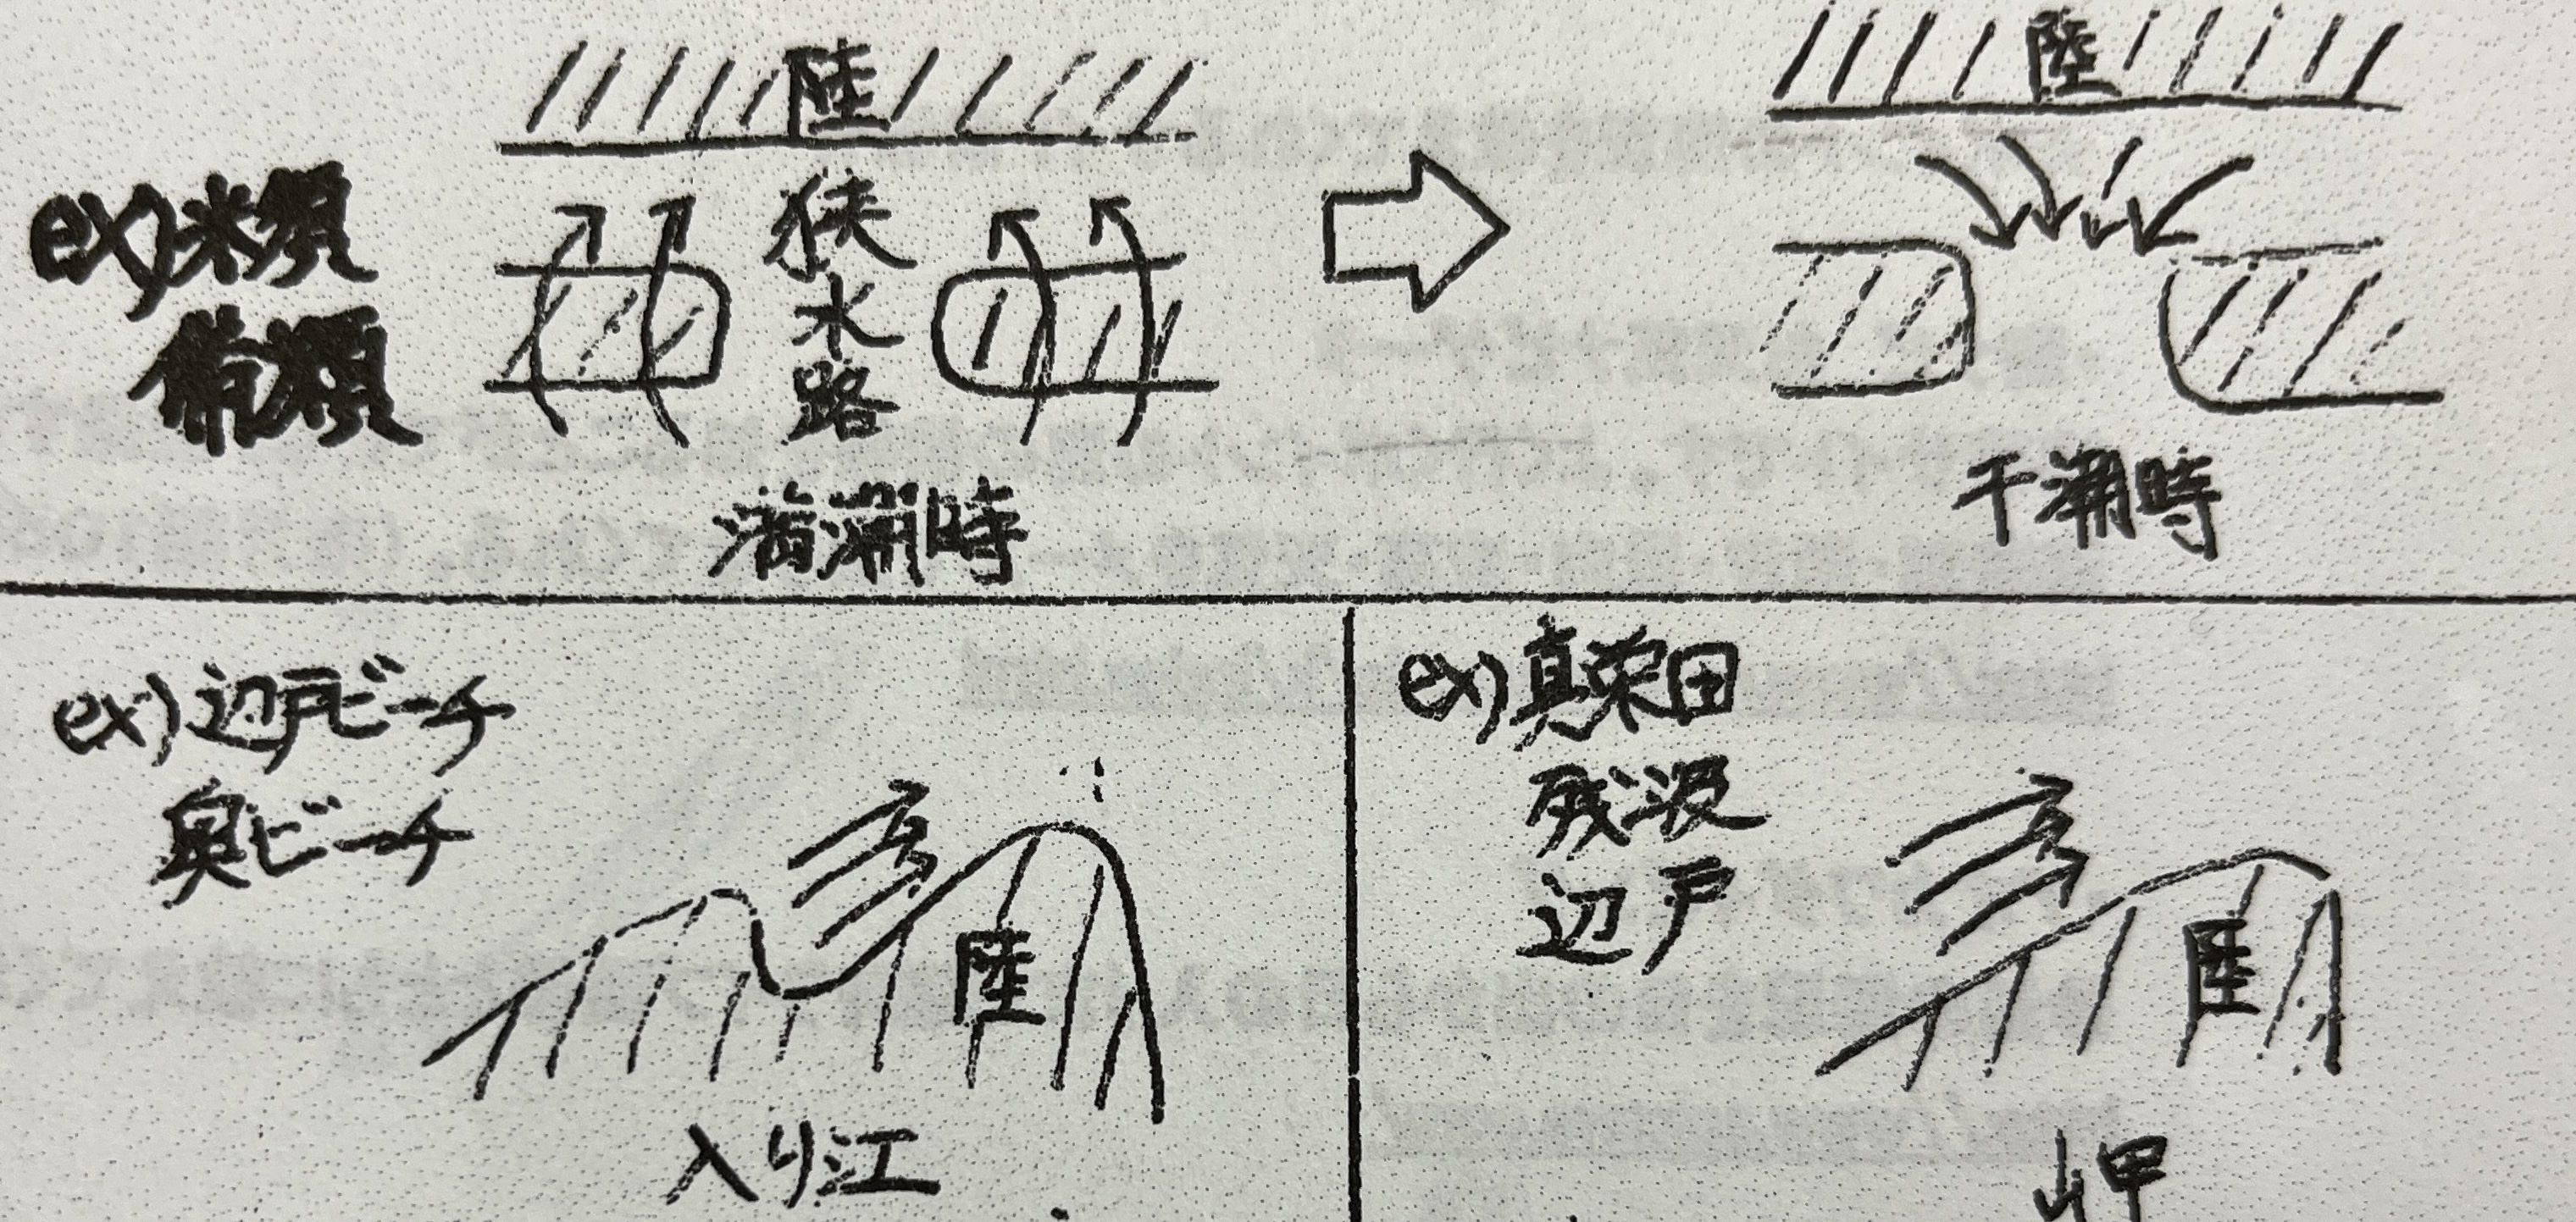 陸
ex)米須
備瀬
狭水路
満潮時
陸
干潮時
ex)辺戸ビーチ
奥ビーチ
陸
入り江
ex)真栄田
残波
辺戸
陸
岬